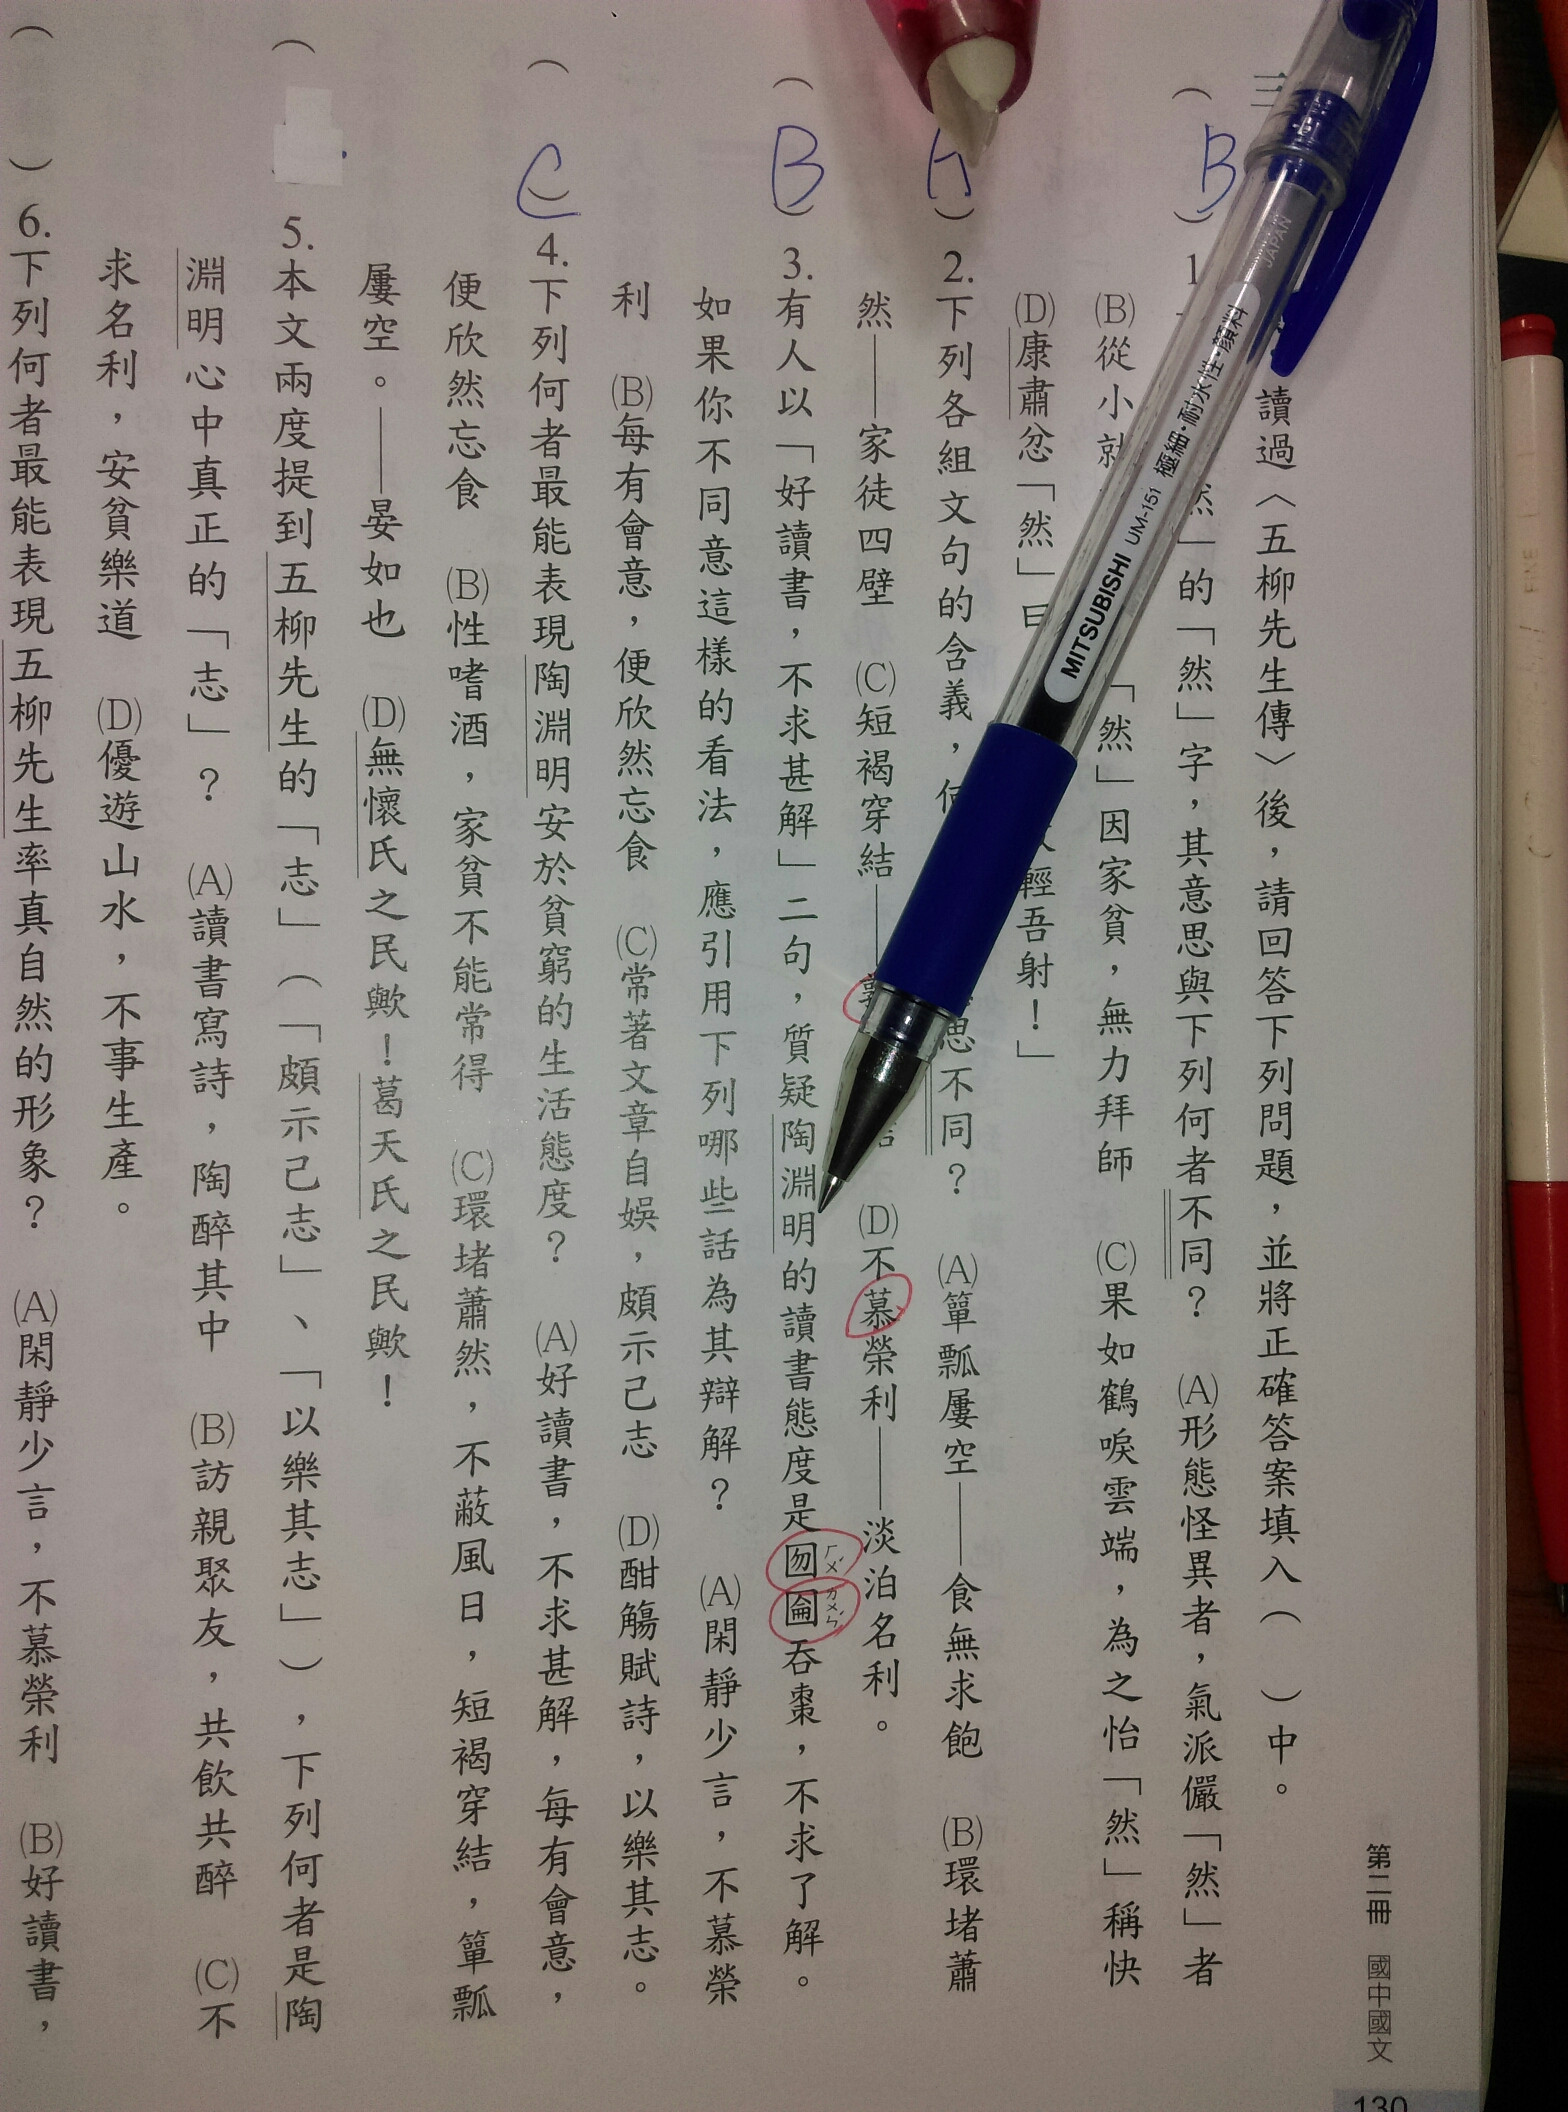 三 讀過〈五柳先生傳〉後，請回答下列問題，並將正確答案填入（　）中。
（B）1 然」的「然」字，其意思與下列何者不同？ (A)形態怪異者，氣派儼「然」者
(B)從小就「然」因家貧，無力拜師 (C)果如鶴唳雲端，為之怡「然」稱快
(D)康肅忿「然」曰 輕吾射！」
（ ）2.下列各組文句的含義， 思不同？ (A)簞瓢屢空——食無求飽 (B)環堵蕭
然——家徒四壁 (C)短褐穿結—— (D)不慕榮利——淡泊名利。
（B）3.有人以「好讀書，不求甚解」二句，質疑陶淵明的讀書態度是囫ㄏㄨˊ圇ㄌㄨㄣˊ吞棗，不求了解。
如果你不同意這樣的看法，應引用下列哪些話為其辯解？ (A)閑靜少言，不慕榮
利 (B)每有會意，便欣然忘食 (C)常著文章自娛，頗示己志 (D)酣觴賦詩，以樂其志。
（C）4.下列何者最能表現陶淵明安於貧窮的生活態度？ (A)好讀書，不求甚解，每有會意，
便欣然忘食 (B)性嗜酒，家貧不能常得 (C)環堵蕭然，不蔽風日，短褐穿結，簞瓢
屢空。——晏如也 (D)無懷氏之民歟！葛天氏之民歟！
（ 5.本文兩度提到五柳先生的「志」（「頗示己志」、「以樂其志」），下列何者是陶
淵明心中真正的「志」？ (A)讀書寫詩，陶醉其中 (B)訪親聚友，共飲共醉 (C)不
求名利，安貧樂道 (D)優遊山水，不事生產。
（　）6.下列何者最能表現五柳先生率真自然的形象？ (A)閑靜少言，不慕榮利 (B)好讀書，
第二冊 國中國文
130
MITSUBISHI UM-151 極細・耐水性・顔料
JAPAN